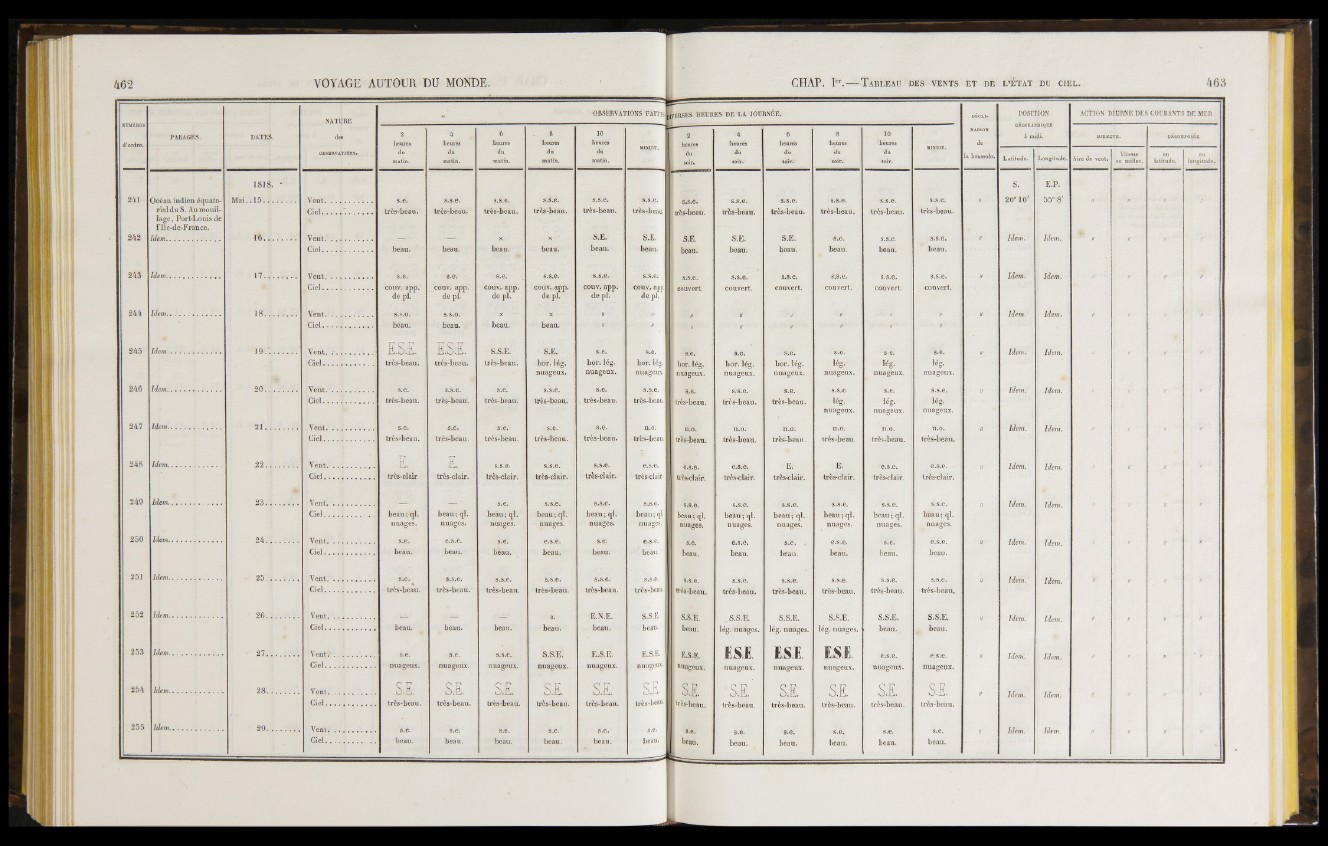 462 VOYAGE AUTOUR DU MONDE.
CHAP. Ier.—TABLEAU DES VENTS ET DE L'ÉTAT DU CIEL. 463
NUMÉROS d'ordre. PARAGES. DATES. NATURE des OBSERVATIONS. OBSERVATIONS FAITES DIVERSES HEURES DE LA JOURNÉE. DÉCLINAISON de la boussole. POSITION GÉOGRAPHIQUE à midi. ACTION DIURNE DES COURANTS DE MER
2 heures du matin. 4 heures du matin. 6 heures du matin. 8 heures du matin. 10 heures du matin. 2 heures du soir. 4 heures du soir. 6 heures du soir. 8 heures du soir. 10 heures du soir. MINUIT. Latitude. Longitude. DIRECTE. Aire de vent. Vitesse en milles. en latitude. en longitude.
1818. S. E.P.
241 Océan indien équato- Mai.. 15 Vent s.e. s.s.e. s.s.e. s.s.e. s.s.e. s.s.e. s.s.e. s.s.e. s.s.e. s.s.e. s.s.e. s.s.e. 20° 10' 55° 8'
rial du S. Au mouil- Ciel très-beau. très-beau. très-beau. très-beau. très-beau. très-beau. très-beau. très-beau. très-beau. très-beau. très-beau. très-beau.
lage, Port-Louis de
l'Ile-de-France.
242 Idem 16 Vent — — x x S.E. S.E. S.E. S.E. S.E. s.e. s.s.e. s.s.e. Idem. Idem.
Ciel beau. beau. beau. beau. beau. beau. beau. beau. beau. beau. beau. beau.
243 Idem 17 Vent s.e. s.e. s.e. s.s.e. s.s.e. s.s.e. s.s.e. s.s.e. s.s.e. s.s.e. s.s.e. s.s.e. Idem. Idem.
Ciel couv. app. couv. app. couv. app. couv. app. couv. app. couv. app. couvert. couvert. couvert. couvert. couvert. couvert.
de pl. de pl. de pl. de pl. de pl. de pl.
244 Idem 18 Vent s.s.e. s.s.e. x x Idem. Idem.
Ciel beau. beau. beau. beau.
245 Idem 19 Vent E.S.E. E.S.E. S.S.E. S.E. s.e. s.e. s.e. s.e. s.e. s.e. s.e. s.e. Idem. Idem.
Ciel très-beau. très-beau. très-beau. hor. lég. hor. lég. hor. lég. hor. lég. hor. lég. hor. lég. lég. lég. lég.
nuageux. nuageux. nuageux. nuageux. nuageux. nuageux. nuageux. nuageux. nuageux.
246 Idem 20 Vent s.e. s.s.e. s.e. s.s.e. s.e. s.s.e. s.e. s.s.e. s.e. s.s.e. s.e. s.s.e. Idem. Idem.
Ciel très-beau. très-beau. très-beau. très-beau. très-beau. très-beau. très-beau. très-beau. très-beau. lég. lég. lég.
nuageux. nuageux. nuageux.
247 Idem 21 Vent s.e. s.e. s.e. s.e. s.e. n.o. n.o. n.o. n.o. n.o. n.o. n.o. Idem. Idem.
Ciel très-beau. très-beau. très-beau. très-beau. très-beau. très-beau. très-beau. très-beau. très-beau. très-beau. très-beau. très-beau.
248 Idem 22 Vent E. E. s.s.e. s.s.e. s.s.e. e.s.e. e.s.e. e.s.e. E. E. e.s.e. e.s.e. Idem. Idem.
Ciel très-clair. très-clair. très-clair. très-clair. très-clair. très-clair. très-clair. très-clair. très-clair. très-clair. très-clair. très-clair.
249 Idem 23 Vent — — s.e. s.s.e. s.s.e. s.s.e. s.s.e. s.s.e. s.s.e. s.s.e. s.s.e. s.s.e. Idem. Idem.
Ciel beau; ql. beau; ql. beau; ql. beau; ql. beau; ql. beau; ql. beau; ql. beau; ql. beau; ql. beau; ql. beau; ql. beau; ql.
nuages. nuages. nuages. nuages. nuages. nuages. nuages. nuages. nuages. nuages. nuages. nuages.
250 Idem 24 Vent s.e. e.s.e. s.e. e.s.e. s.e. e.s.e. s.e. e.s.e. s.e. e.s.e. s.e. e.s.e. Idem. Idem.
Ciel beau. beau. beau. beau. beau. beau. beau. beau. beau. beau. beau. beau.
251 Idem 25 Vent s.e. s.s.e. s.s.e. s.s.e. s.s.e. s.s.e. s.s.e. s.s.e. s.s.e. s.s.e. s.s.e. s.s.e. Idem. Idem.
Ciel très-beau. très-beau. très-beau. très-beau. très-beau. très-beau. très-beau. très-beau. très-beau. très-beau. très-beau. très-beau.
252 Idem 26 Vent — — — s. E.N.E. S.S.E. S.S.E. S.S.E. S.S.E. S.S.E. S.S.E. S.S.E. Idem. Idem.
Ciel beau. beau. beau. beau. beau. beau. beau. lég. nuages. lég. nuages. lég. nuages. beau. beau.
253 Idem 27 Vent s.e. s.e. s.s.e. S.S.E. E.S.E. E.S.E. E.S.E. E.S.E. E.S.E. E.S.E. e.s.e. e.s.e. Idem. Idem.
Ciel nuageux. nuageux. nuageux. nuageux. nuageux. nuageux. nuageux. nuageux. nuageux. nuageux. nuageux. nuageux.
254 Idem 28 Vent S.E. S.E. S.E. S.E. S.E. S.E. S.E. S.E. S.E. S.E. S.E. S.E. Idem. Idem.
Ciel très-beau. très-beau. très-beau. très-beau. très-beau. très-beau. très-beau. très-beau. très-beau. très-beau. très-beau. très-beau.
255 Idem 29 Vent s.e. s.e. s.e. s.e. s.e. s.e. s.e. s.e. s.e. s.e. s.e. s.e. Idem. Idem.
Ciel beau. beau. beau. beau. beau. beau. beau. beau. beau. beau. beau. beau.